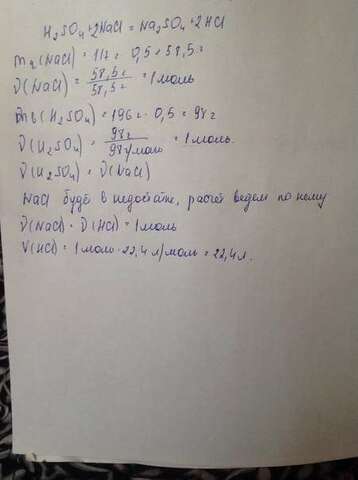 H₂SO₄+2NaCl = Na₂SO₄+2HCl
mв(NaCl) = 117г · 0,5 = 58,5г
ν(NaCl) = 58,5г / 58,5г = 1моль
mв(H₂SO₄) = 196г · 0,5 = 98г
ν(H₂SO₄) = 98г / 98г/моль = 1моль.
ν(H₂SO₄) = ν(NaCl)
NaCl будет в недостатке, расчёт ведем по нему
ν(NaCl) = ν(HCl) = 1моль
V(HCl) = 1моль · 22,4л/моль = 22,4л.